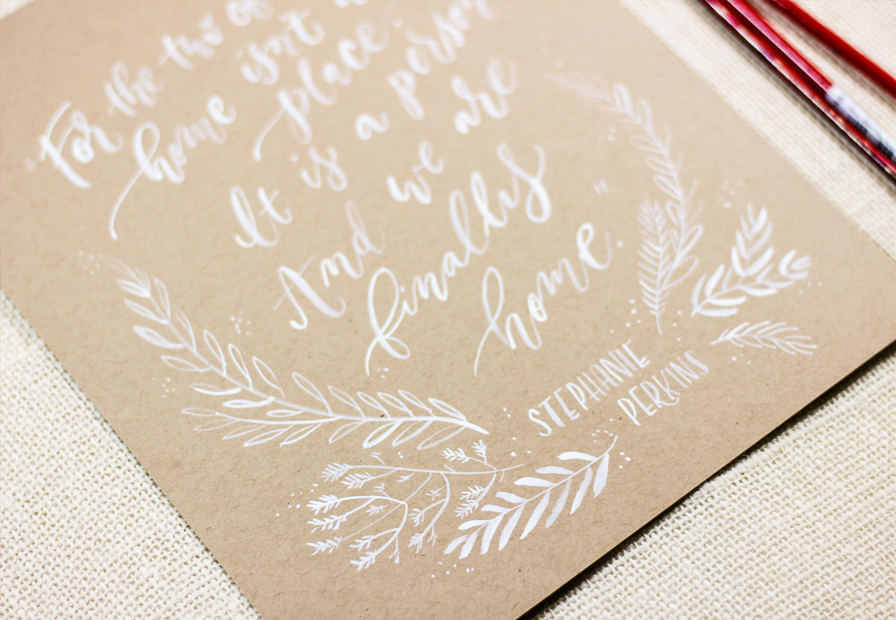 "For the two of
home isn't a
place.
a person
It is
we are
And
finally
home."
STEPHANIE
PERKINS